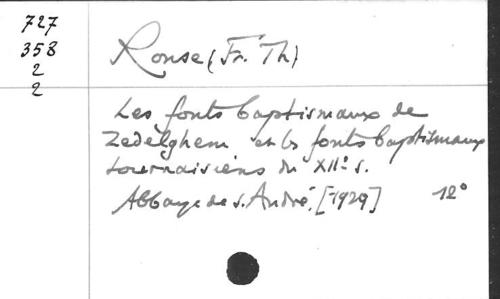 727
358
2
2
Ronse (Fr. Th)
Les fonts baptismaux de
Zedelghem et les fonts baptismaux
tournaisiens du XIIe s.
Abbaye de s. André, [1929] 12°